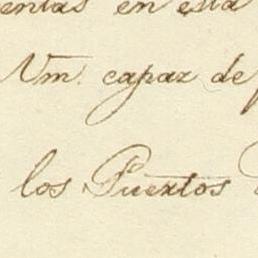 entas en esta
Vm. capaz de
los Puertos